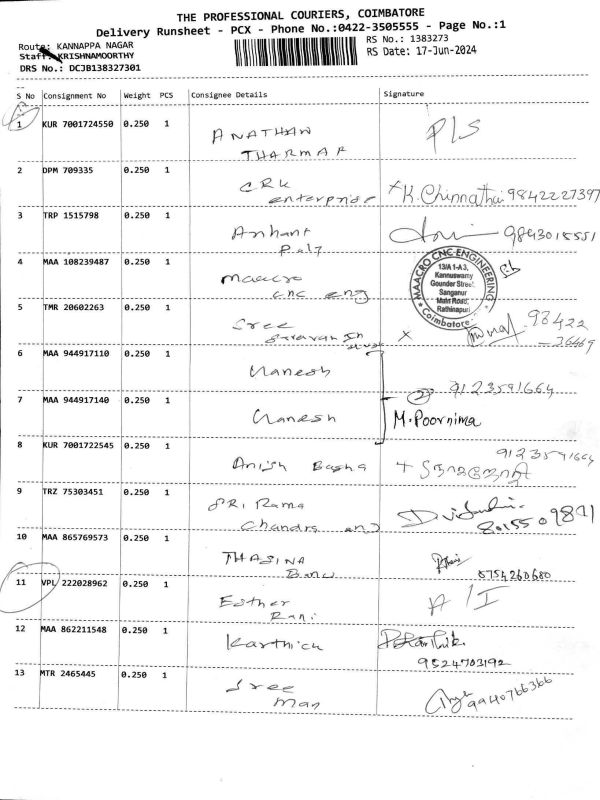 THE PROFESSIONAL COURIERS, COIMBATORE
Delivery Runsheet - PCX - Phone No.:0422-3505555 - Page No.:1
Route: KANNAPPA NAGAR
RS No.: 1383273
Staff: KRISHNAMOORTHY
RS Date: 17-Jun-2024
DRS No.: DCJB138327301
S No Consignment No Weight PCS Consignee Details Signature
1 KUR 7001724550 0.250 1 ANATHAN PLS
THARMAR
2 DPM 709335 0.250 1 CRK K. Chinnathai 9842227397
enterprise
3 TRP 1515798 0.250 1 Arihant 9843018551
4 MAA 108239487 0.250 1 maacro
cnc eng
MAACRO CNC ENGINEERING
13/A 1-A3,
Kannuswamy
Gounder Street,
Sanganur
Main Road,
Rathinapuri
Coimbatore
5 TMR 20602263 0.250 1 Sree x 98422
- 36469
6 MAA 944917110 0.250 1 Ganesh
9123591664
7 MAA 944917140 0.250 1 Ganesh M. Poornima
8 KUR 7001722545 0.250 1 Anish Basha 9123591664
9 TRZ 75303451 0.250 1 SRI Rama
Chandra and 8015509871
10 MAA 865769573 0.250 1 THASINA
Banu 8754260680
11 VPL 222028962 0.250 1 Esther A/I
Rani
12 MAA 862211548 0.250 1 Karthick
9524703192
13 MTR 2465445 0.250 1 Sree 9940766366
man